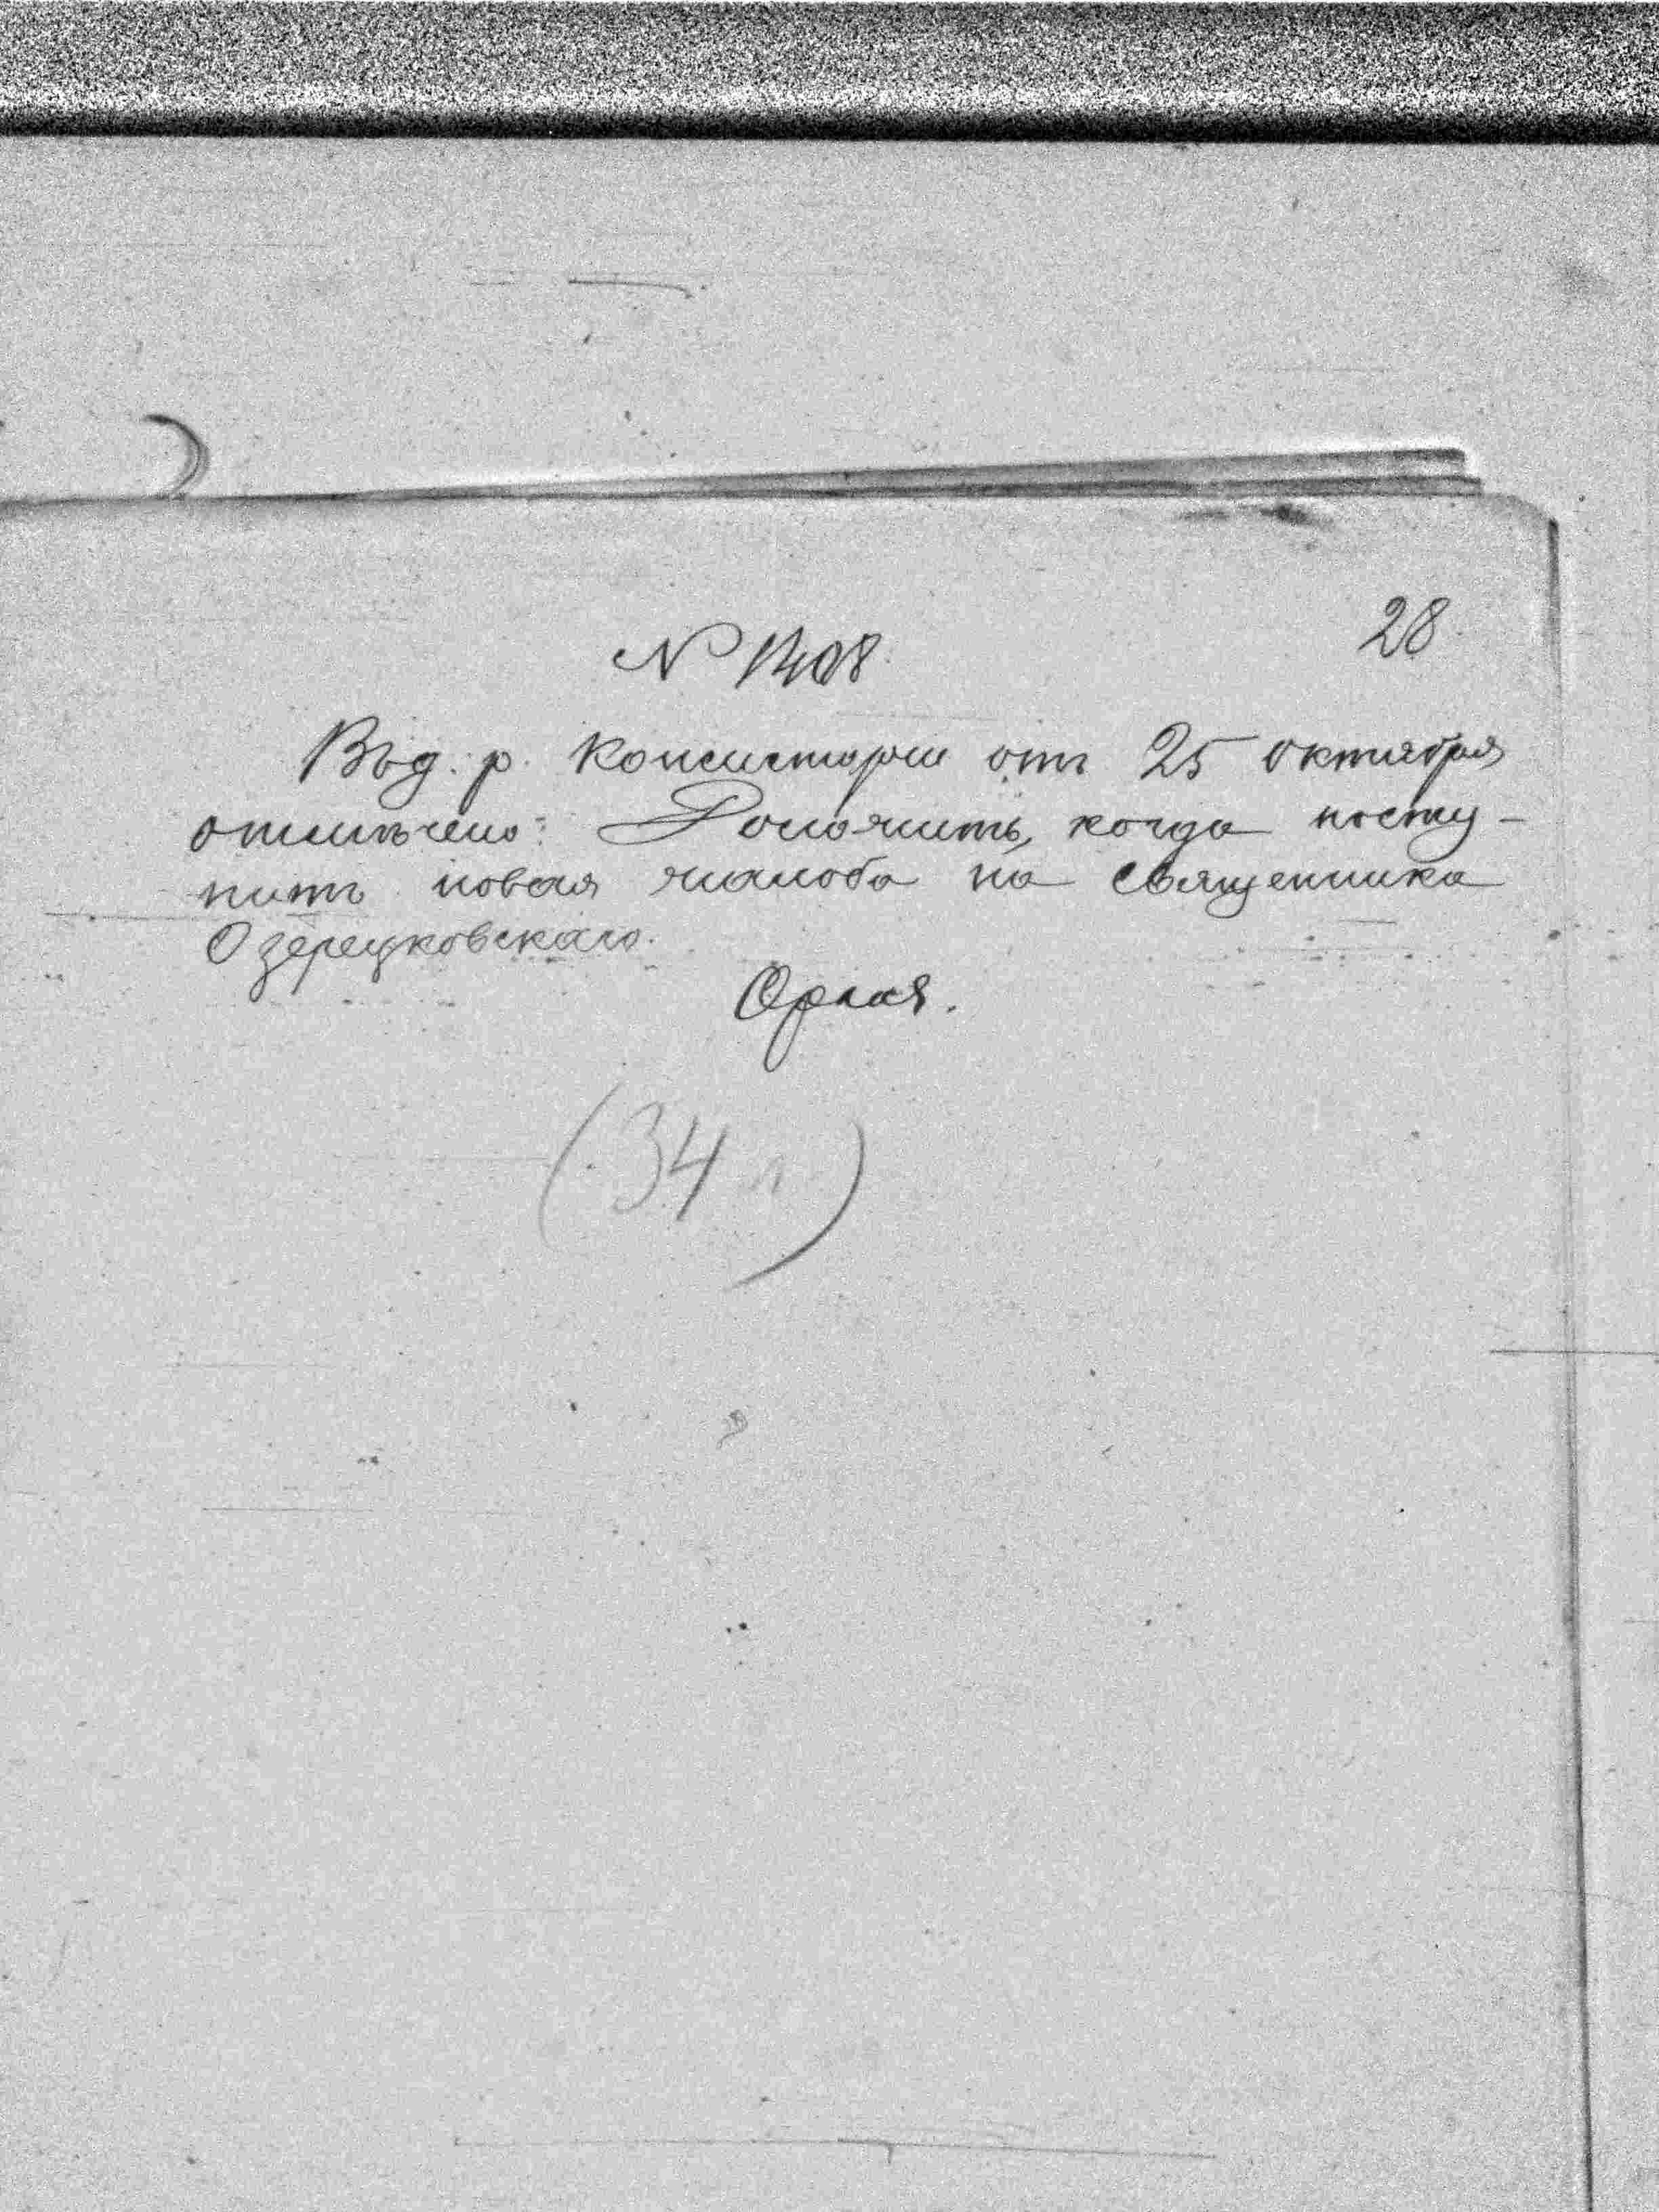 28
N 1408
Вѣд. р. Консисторіи отъ 25 октября
отмѣчено: Доложить, когда посту-
питъ новая жалоба на священника
Озерецковскаго.
(34 л)